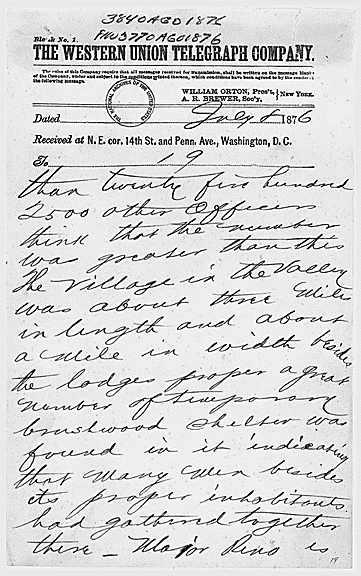 3840 AGO 1876
FW 3770 AGO 1876
Blank No. 1.
THE WESTERN UNION TELEGRAPH COMPANY.
The rules of this Company require that all messages received for transmission, shall be written on the message blanks
of the Company, under and subject to the conditions printed thereon, which conditions have been agreed to by the sender of
the following message.
WILLIAM ORTON, Pres't, } NEW YORK.
A. R. BREWER, Sec'y,
Dated July 8 1876
Received at N. E. cor. 14th St. and Penn. Ave., Washington, D. C.
To 19
than twenty five hundred
2500 other Officers
think that the number
was greater than this
The Village in the Valley
was about three Miles
in length and about
a Mile in width besides
the lodges proper a great
number of temporary
brushwood shelter was
found in it indicating
that Many Men besides
its proper inhabitants
had gathered together
there — Major Reno is
19